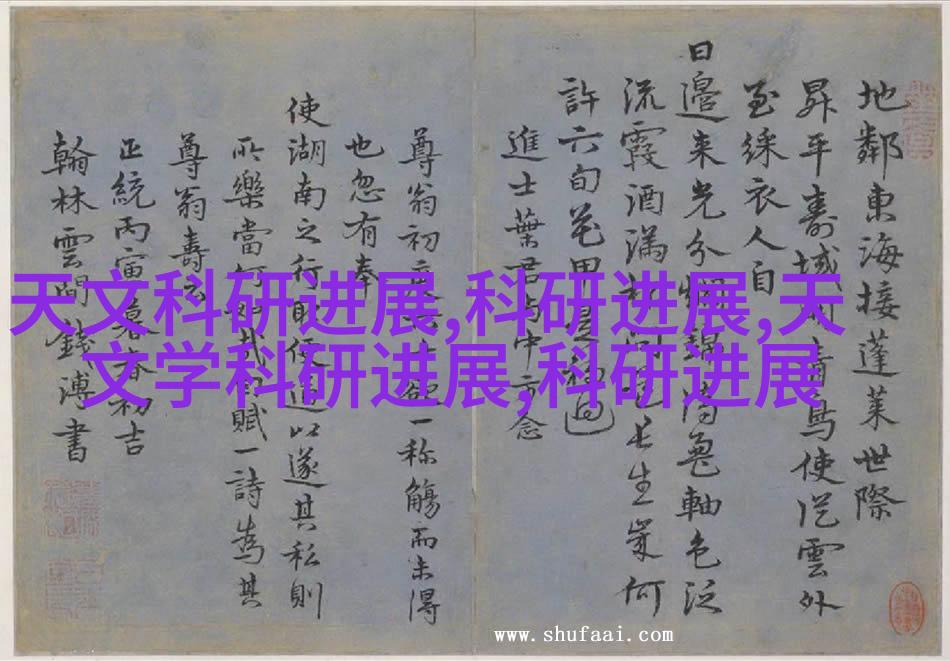 地鄰東海接蓬萊世際
昇平壽域開青鳥使從雲外
至綵衣人自
日邊來光分錦鸞軸色泛
流霞酒滿杯長生歲何
許六旬花甲是過
進士葉君中念
尊翁初一称觴而未得
也忽有奉
使湖南之行取便道以遂其私則
所樂當何如哉賦一詩為其
尊翁壽云
正統丙寅暮春初吉
翰林雲間錢溥書
天文科研进展,科研进展,天
文学科研进展,科研进展
www.shufaai.com